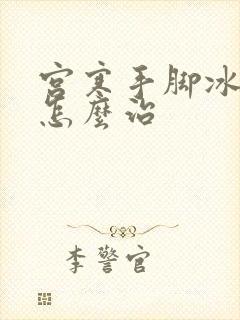 宫寒手脚冰
怎麼治
李警官